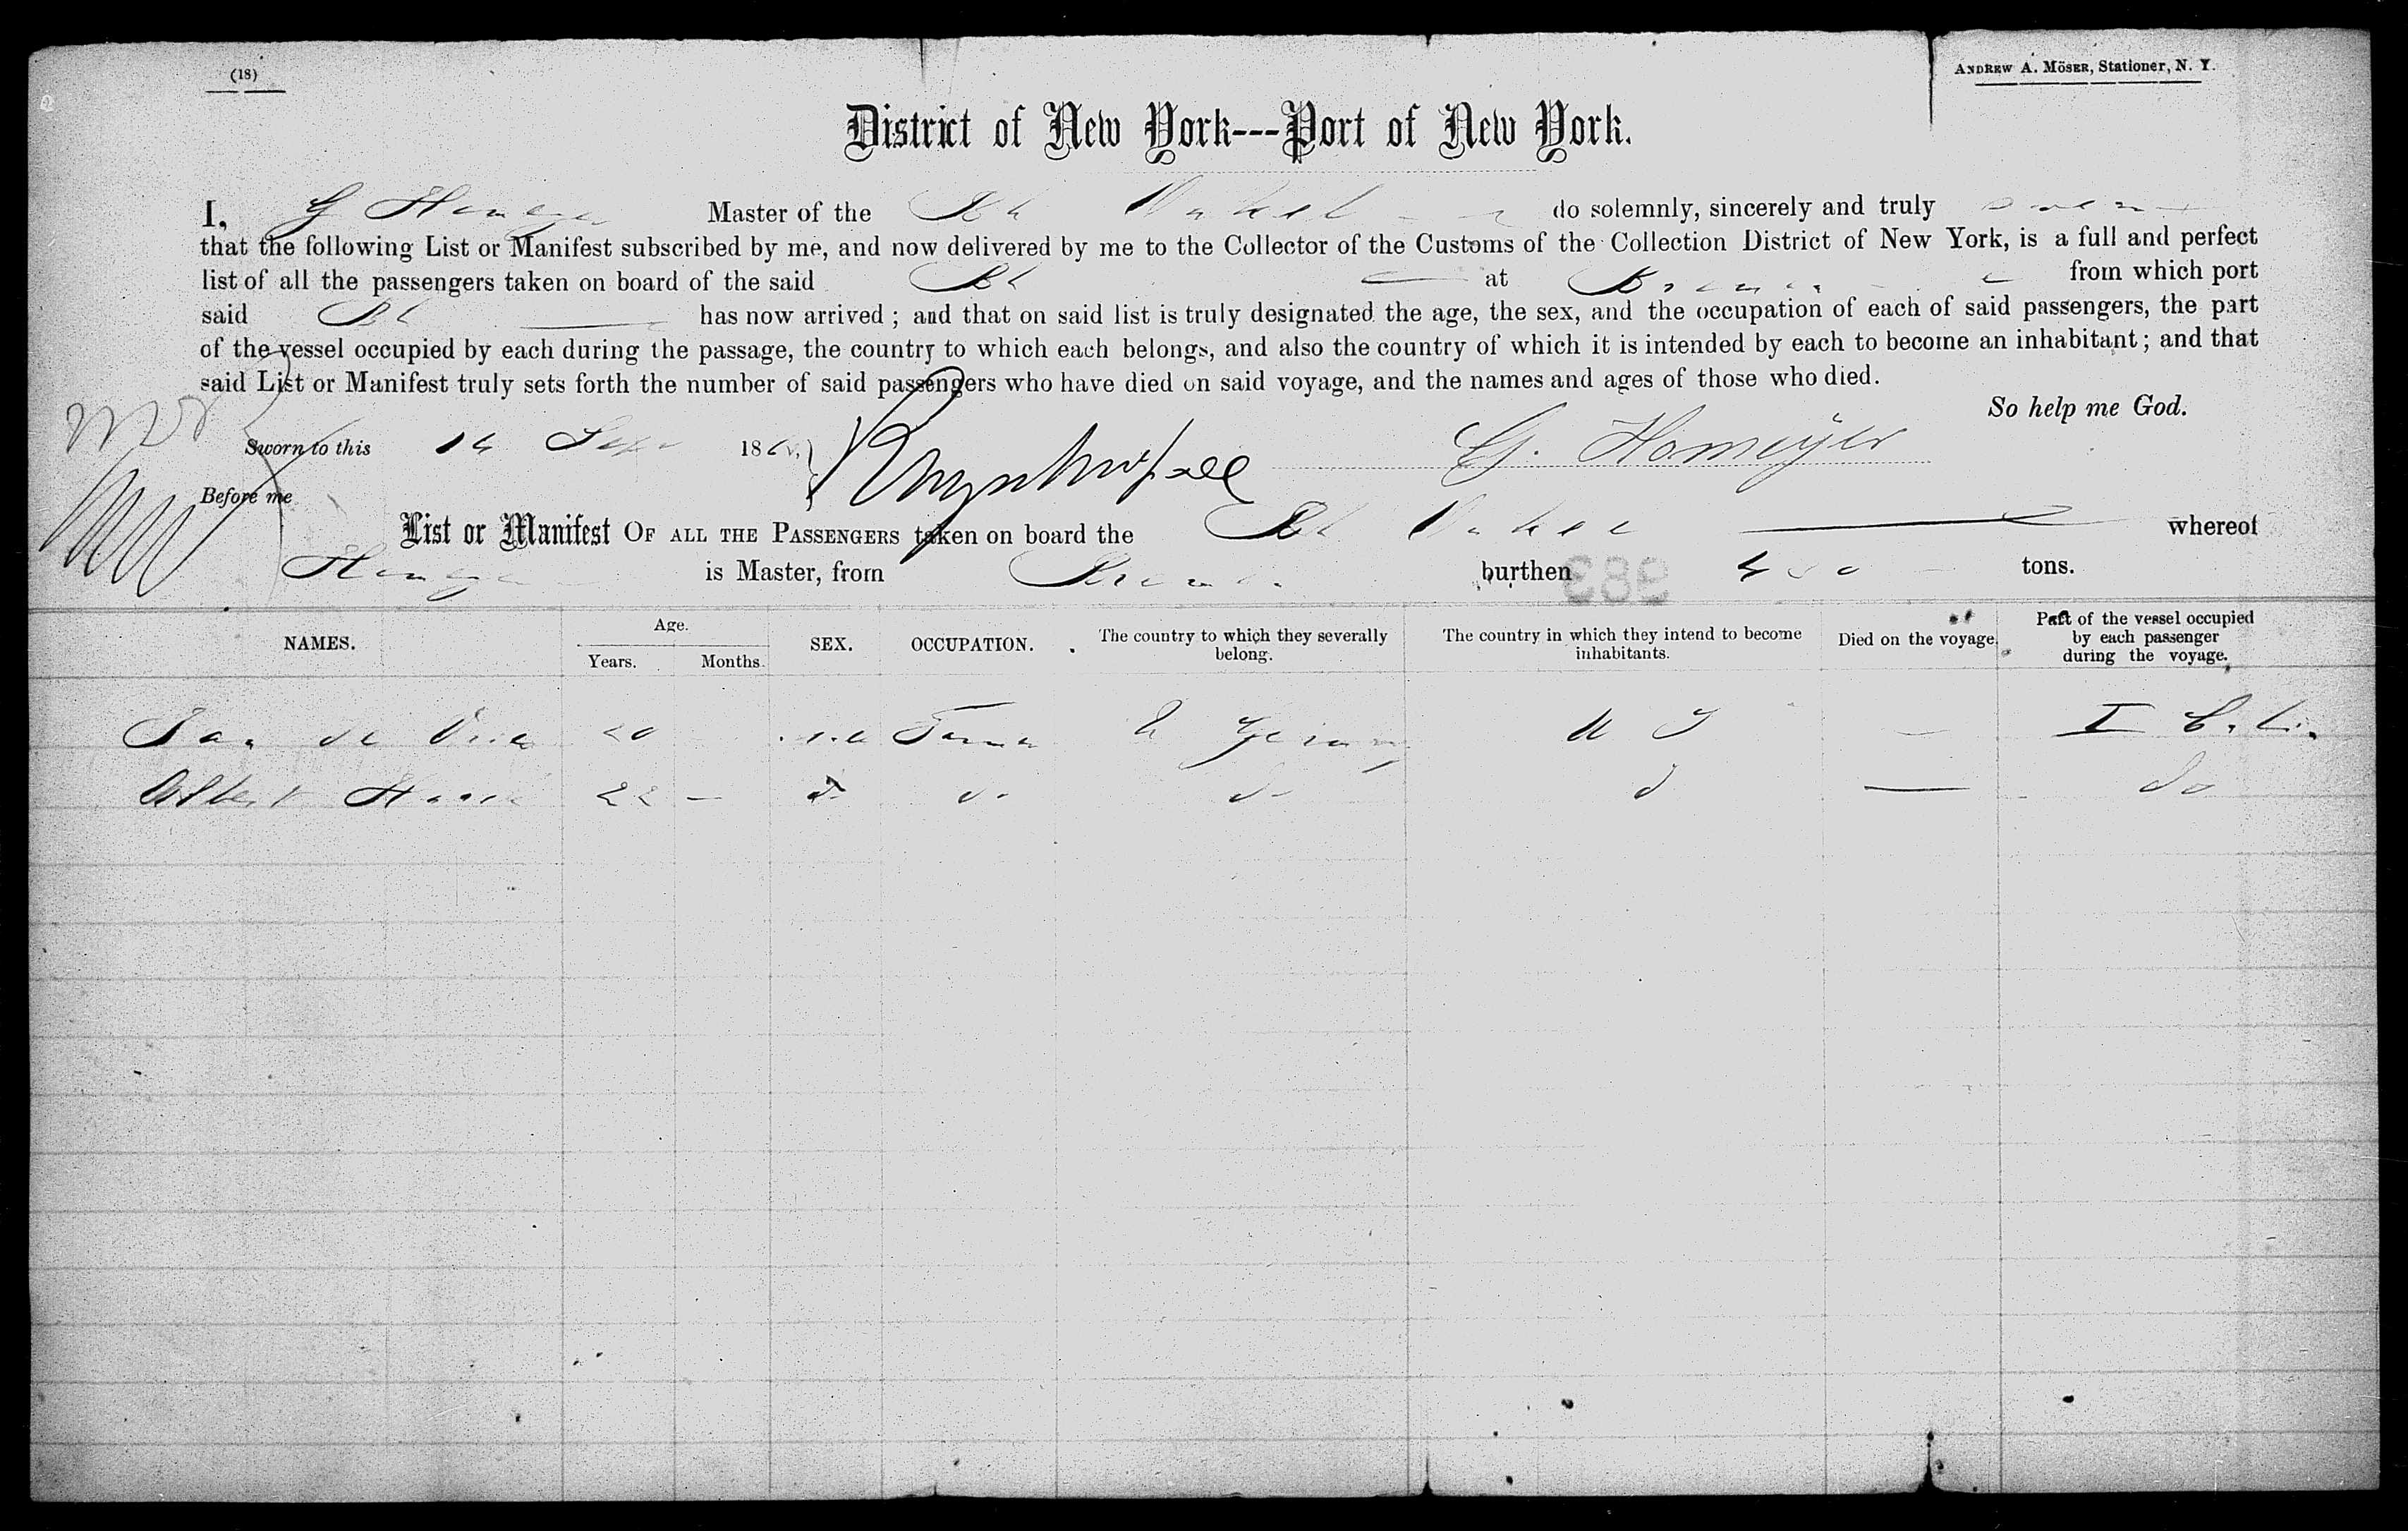 (18)
ANDREW A. MÖSER, Stationer, N. Y.
District of New York---Port of New York.
I, G Homeyer Master of the Bk do solemnly, sincerely and truly swear
that the following List or Manifest subscribed by me, and now delivered by me to the Collector of the Customs of the Collection District of New York, is a full and perfect
list of all the passengers taken on board of the said Bk at Bremen from which port
said Bk has now arrived ; and that on said list is truly designated the age, the sex, and the occupation of each of said passengers, the part
of the vessel occupied by each during the passage, the country to which each belongs, and also the country of which it is intended by each to become an inhabitant ; and that
said List or Manifest truly sets forth the number of said passengers who have died on said voyage, and the names and ages of those who died.
So help me God.
Sworn to this 14 Sept 186 G. Homeyer
Before me
List or Manifest OF ALL THE PASSENGERS taken on board the Bk whereof
Homeyer is Master, from Bremen burthen tons.
NAMES. Age. Years. Months. SEX. OCCUPATION. The country to which they severally belong. The country in which they intend to become inhabitants. Died on the voyage. Part of the vessel occupied by each passenger during the voyage.
Jan de 20 Farmer Germany U S — I
Albert 22 — do do do d — do